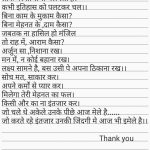 कभी इतिहास को पलटकर चल।।
बिना काम के मुकाम कैसा?
बिना मेहनत के ,दाम कैसा?
जबतक ना हासिल हो मंजिल
तो राह में, आराम कैसा?
अर्जुन सा ,निशाना रख।
मन में, न कोई बहाना रख।
लक्ष्य सामने है, बस उसी पे अपना ठिकाना रख।।
सोच मत, साकार कर।
अपने कर्मो से प्यार कर।
मिलेगा तेरी मेहनत का फल।
किसी और का ना इंतजार कर।
जो चले थे अकेले उनके पीछे आज मेले है......
जो करते रहे इंतजार उनकी जिंदगी मे आज भी झमेले है।।
Thank you